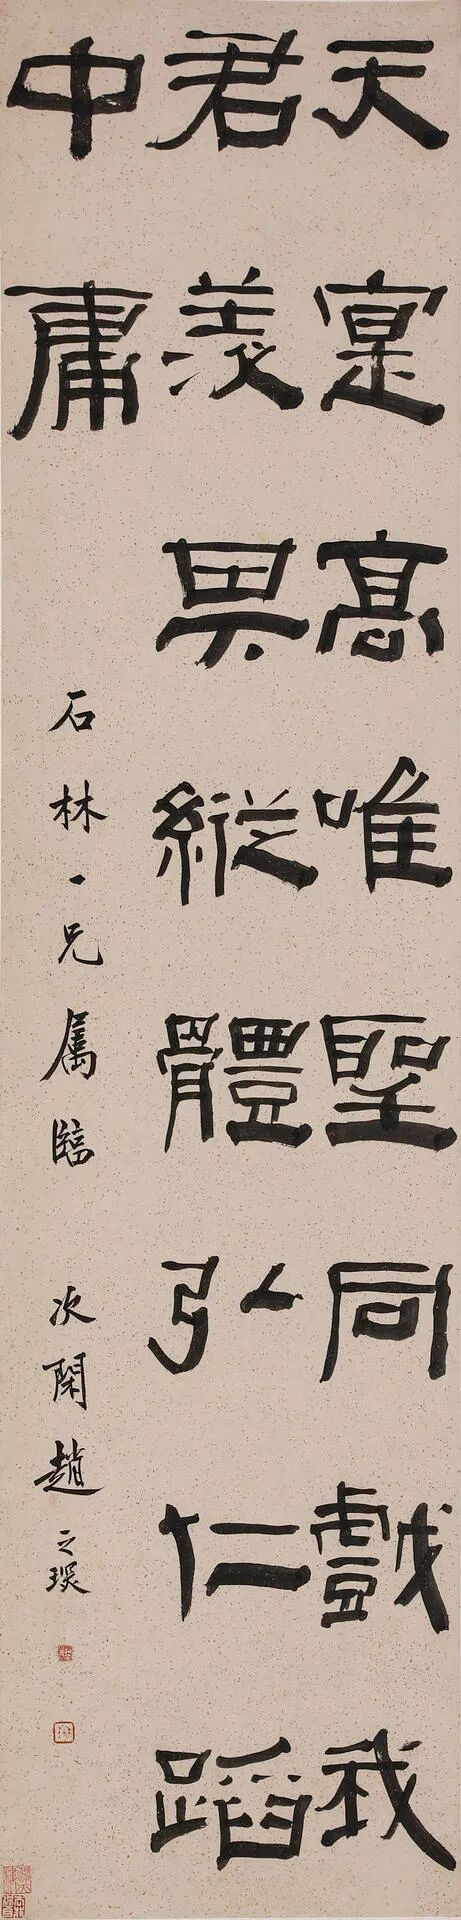 天寔高唯聖同戲我
君羨其縱體弘仁蹈
中庸
石林一兄属臨
次閑趙之琛